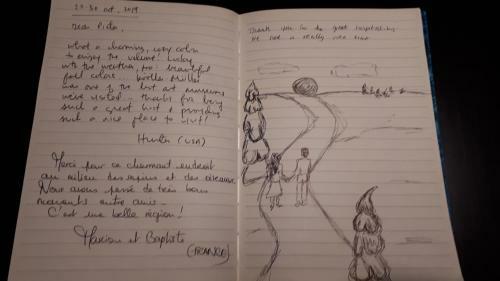 27-30 oct. 2019
Dear Pieter,
what a charming, cozy cabin
to enjoy the volume! Lucky
with the weather, too: beautiful
fall colors. Kröller Müller
was one of the best art museums
we've visited - thanks for being
such a great host & providing
such a nice place to visit!
Hunter (USA)
Merci pour ce charmant endroit
au milieu des sapins et des oiseaux.
Nous avons passé de très bons
moments entre amis.
C'est une belle région!
Marion et Baptiste
(FRANCE)
Thank you for the great hospitality.
We had a really nice time